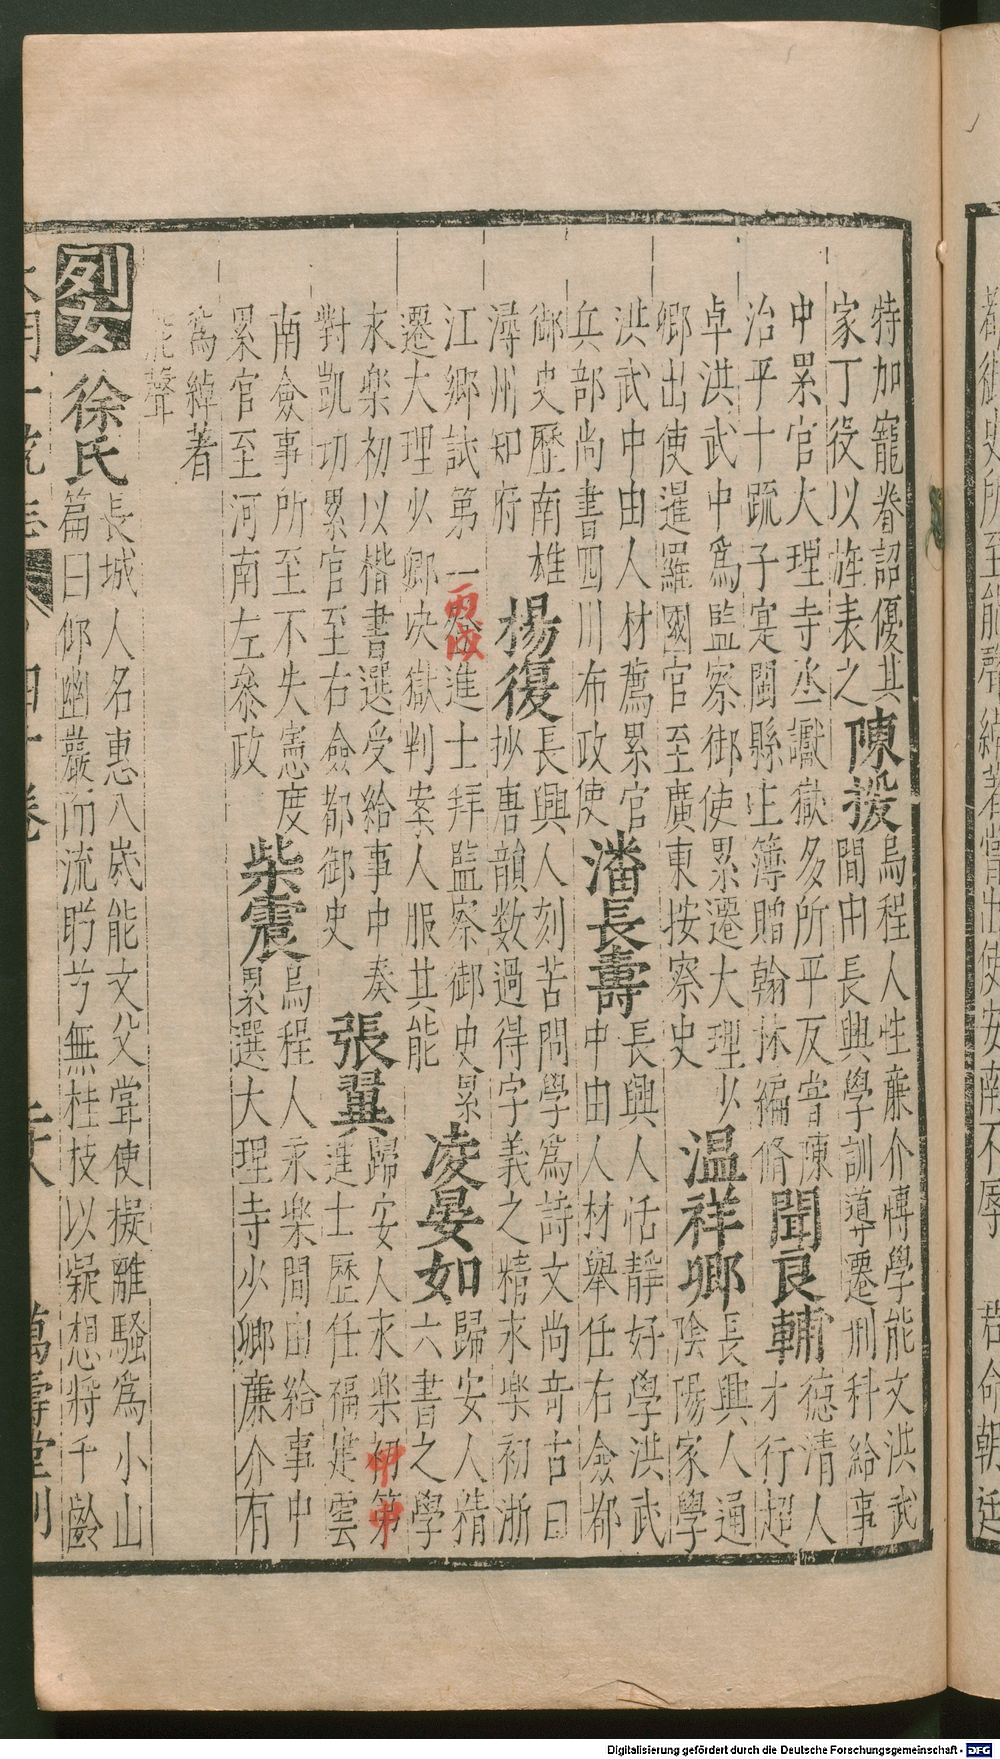 都御史所至能聲綽著嘗出使安南不辱 君命朝廷
特加寵眷詔優其
家丁役以旌表之
陳援
烏程人性廉介博學能文洪武
間由長興學訓導遷刑科給事
中累官大理寺丞讞獄多所平反嘗陳
治平十䟽子寔閩縣主簿贈翰林編脩
聞良輔
德清人
才行超
卓洪武中爲監察御使累遷大理少
卿出使暹羅國官至廣東按察史
温祥卿
長興人通
陰陽家學
洪武中由人材薦累官
兵部尚書四川布政使
潘長壽
長興人恬靜好學洪武
中由人材舉任右僉都
御史歷南雄
潯州知府
楊復
長興人刻苦問學爲詩文尚奇古曰
抄唐韻數過得字義之精永樂初浙
江鄉試第一登進士拜監察御史累
丙戌
遷大理少卿决獄判案人服其能
凌晏如
歸安人精
六書之學
永樂初以楷書選受給事中奏
對凱切累官至右僉都御史
張翼
歸安人永樂初第
甲申
進士歷任福建雲
南僉事所至不失憲度
累官至河南左參政
柴震
烏程人永樂間由給事中
累選大理寺少卿廉介有
爲綽著
能聲
列女
徐氏
長城人名惠八歲能文父嘗使擬離騷爲小山
篇曰仰幽巖而流盻兮無桂枝以凝想將千齡
大明一統志 四十卷 二十八 萬壽堂刊
Digitalisierung gefördert durch die Deutsche Forschungsgemeinschaft - DFG